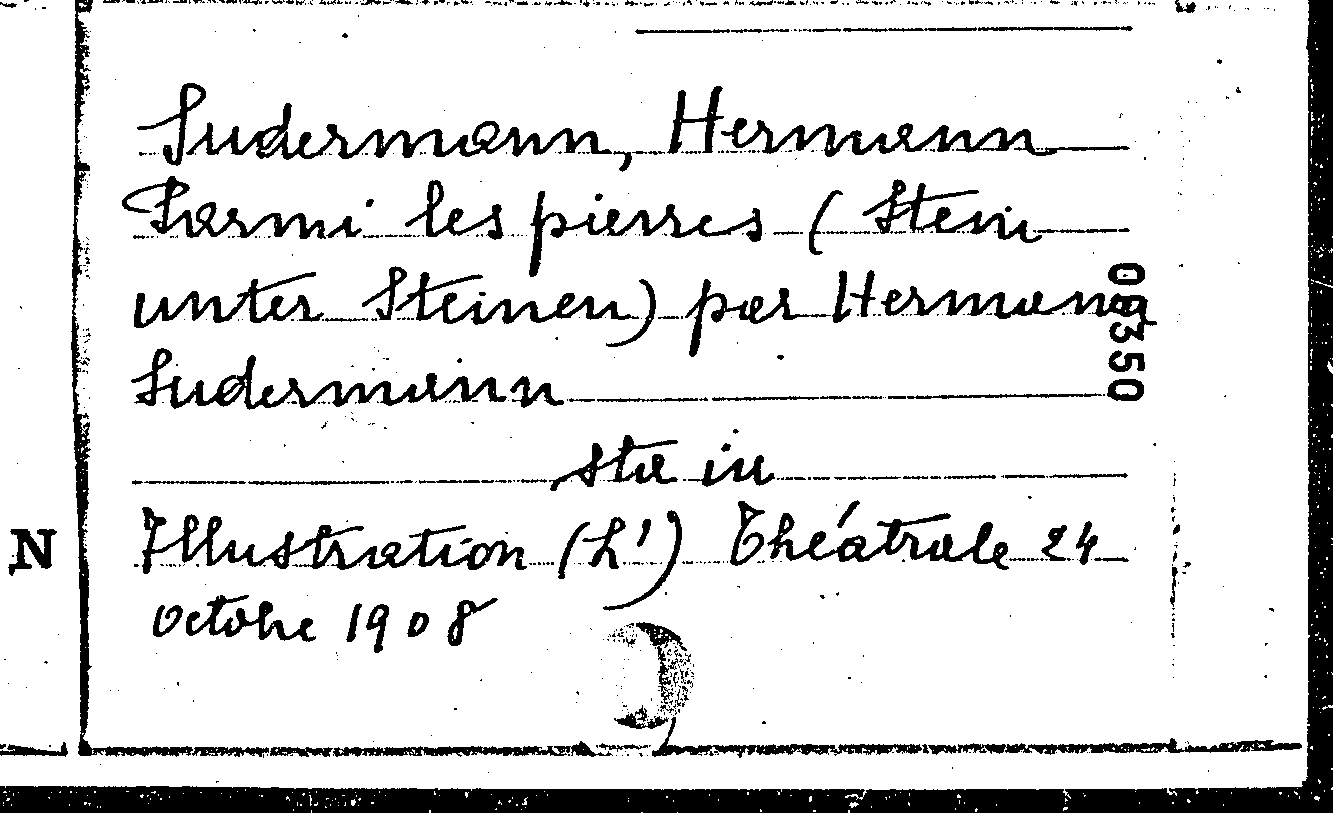 Sudermann, Hermann
Parmi les pierres (Stein
unter Steinen) par Hermann
Sudermann
sta in
N
Illustration (L') Théâtrale 24
octobre 1908